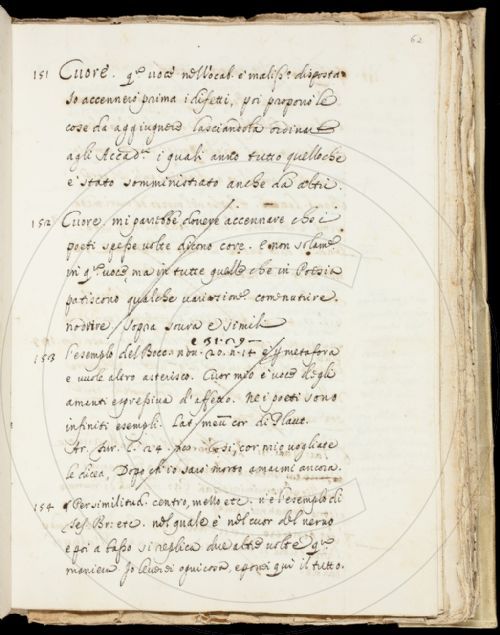 62
151 Cuore. q.ª voce nell'Vocab. è malis.º disposta
Io accennerò prima i difetti, poi proporrò le
cose da aggiugnere lasciandola ordinare
agli Accad.ci i quali anno tutto quello che
è stato somministrato anche da altri.
152 Cuore. mi parrebbe dovere accennare che i
poeti spesse volte dicono core. e non solam.e
in q.ª voce, ma in tutte quelle che in Poesia
patiscono qualche variazione. come nutrire.
nodrire, sopra sovra e simili
e 31. n 9
153 l'esemplo del Bocc. nov. 20. n. 14 è metafora
e vuole altro asterisco. Cuor mio è voce degli
amanti espressiva d'affetto. Ne i poeti sono
infiniti esempli. Lat. meũ cor di Plaut.
Ar. Fur. C. 24. cor mio vogliate
le dicea, Dopo ch'io sarò morto amarmi ancora.
154 Per similitud. centro, mezzo etc. n'è l'esemplo di
Tes. Br. etc. nel quale è nel cuor del verno
e poi a basso si replica due altre volte q.ª
maniera Io leverei ogni cosa, e porrei quì il tutto.